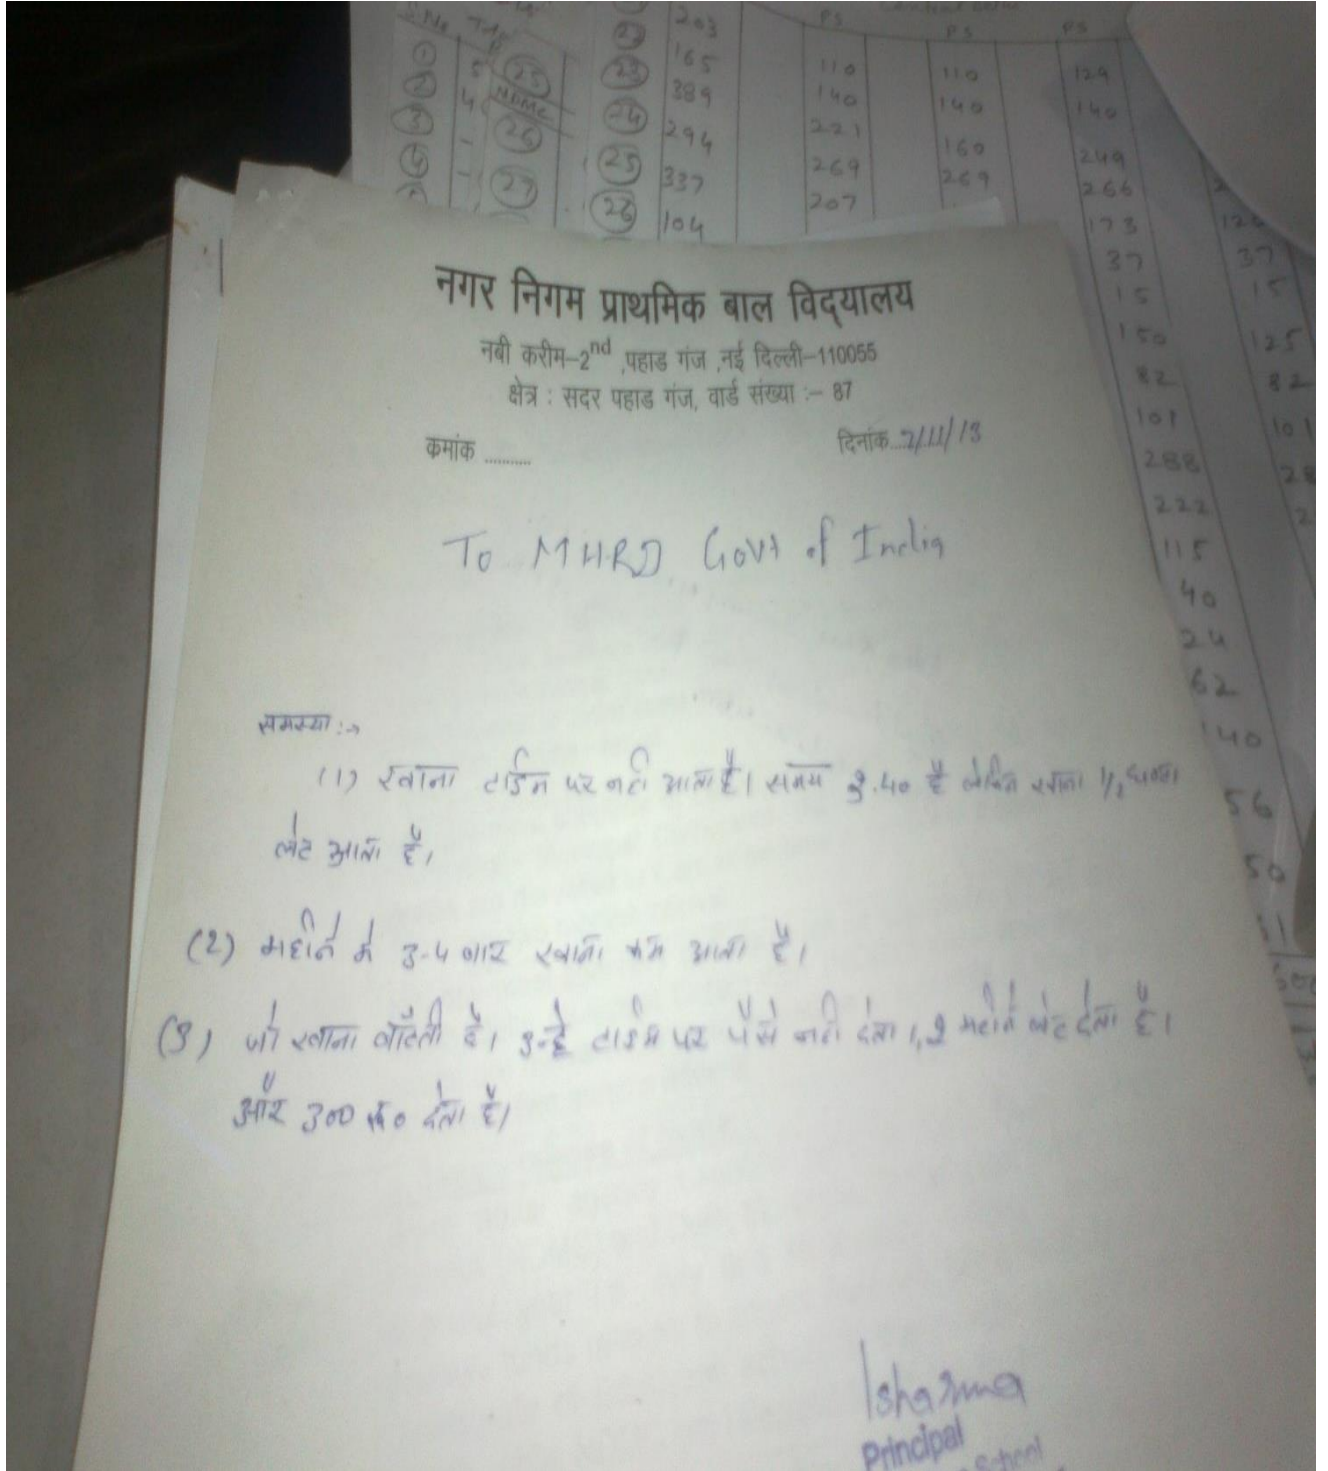 S.No
1
2
3
5
5
4
25
NDMC
26
27
22
23
24
25
26
203
165
389
294
337
104
PS
110
140
221
269
207
PS
110
140
160
269
PS
129
140
249
266
173
37
15
150
82
101
288
222
115
40
24
62
140
56
50
37
15
125
82
101
नगर निगम प्राथमिक बाल विद्यालय
नबी करीम–2nd ,पहाड गंज ,नई दिल्ली–110055
क्षेत्र : सदर पहाड गंज, वार्ड संख्या :– 87
कमांक ........... दिनांक...7/11/13
To MHRD Govt of India
समस्या :→
(1) खाना टाईम पर नही आता है। समय 3.40 है लेकिन खाना 1/2 घण्टा
लेट आता है।
(2) महीने मे 3-4 बार खाना कम आता है।
(3) जो खाना बाँटती है। उन्हे टाईम पर पैसे नही देता 1,2 महीने लेट देता है।
और 300 रू० देता है।
Isharma
Principal
School